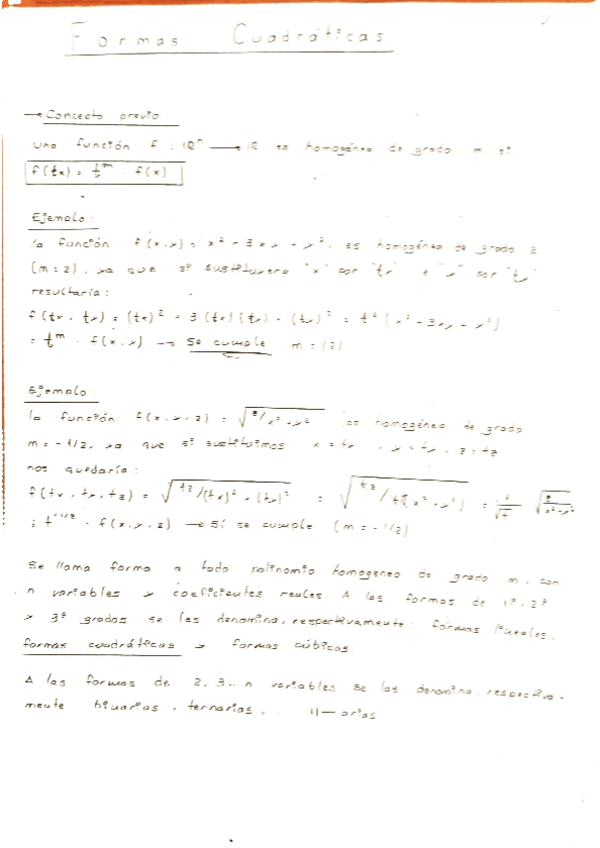 Formas Cuadráticas
→ Concepto previo
una función f : ℝⁿ → ℝ es homogénea de grado m si
f(tx) = t^m · f(x)
Ejemplo:
la función f(x,y) = x² - 3xy + y², es homogénea de grado 2
(m = 2), ya que si sustituyera "x" por "tx" e "y" por "ty"
resultaría:
f(tx, ty) = (tx)² - 3(tx)(ty) + (ty)² = t²(x² - 3xy + y²)
= t^m · f(x,y) → Se cumple m = (2)
Ejemplo:
la función f(x,y,z) = √(z/x²+y²) es homogénea de grado
m = -1/2, ya que si sustituimos x = tx, y = ty, z = tz
nos quedaría:
f(tx, ty, tz) = √(tz/(tx)²+(ty)²) = √(tz/t²(x²+y²)) = 1/√t · √(z/x²+y²)
= t^-1/2 · f(x,y,z) → Sí se cumple (m = -1/2)
Se llama forma a todo polinomio homogeneo de grado m, con
n variables y coeficientes reales. A las formas de 1º, 2º
y 3º grados se las denomina, respectivamente: formas lineales,
formas cuadráticas y formas cúbicas.
A las formas de 2, 3... n variables se las denomina, respectiva-
mente binarias, ternarias, .. n-arias